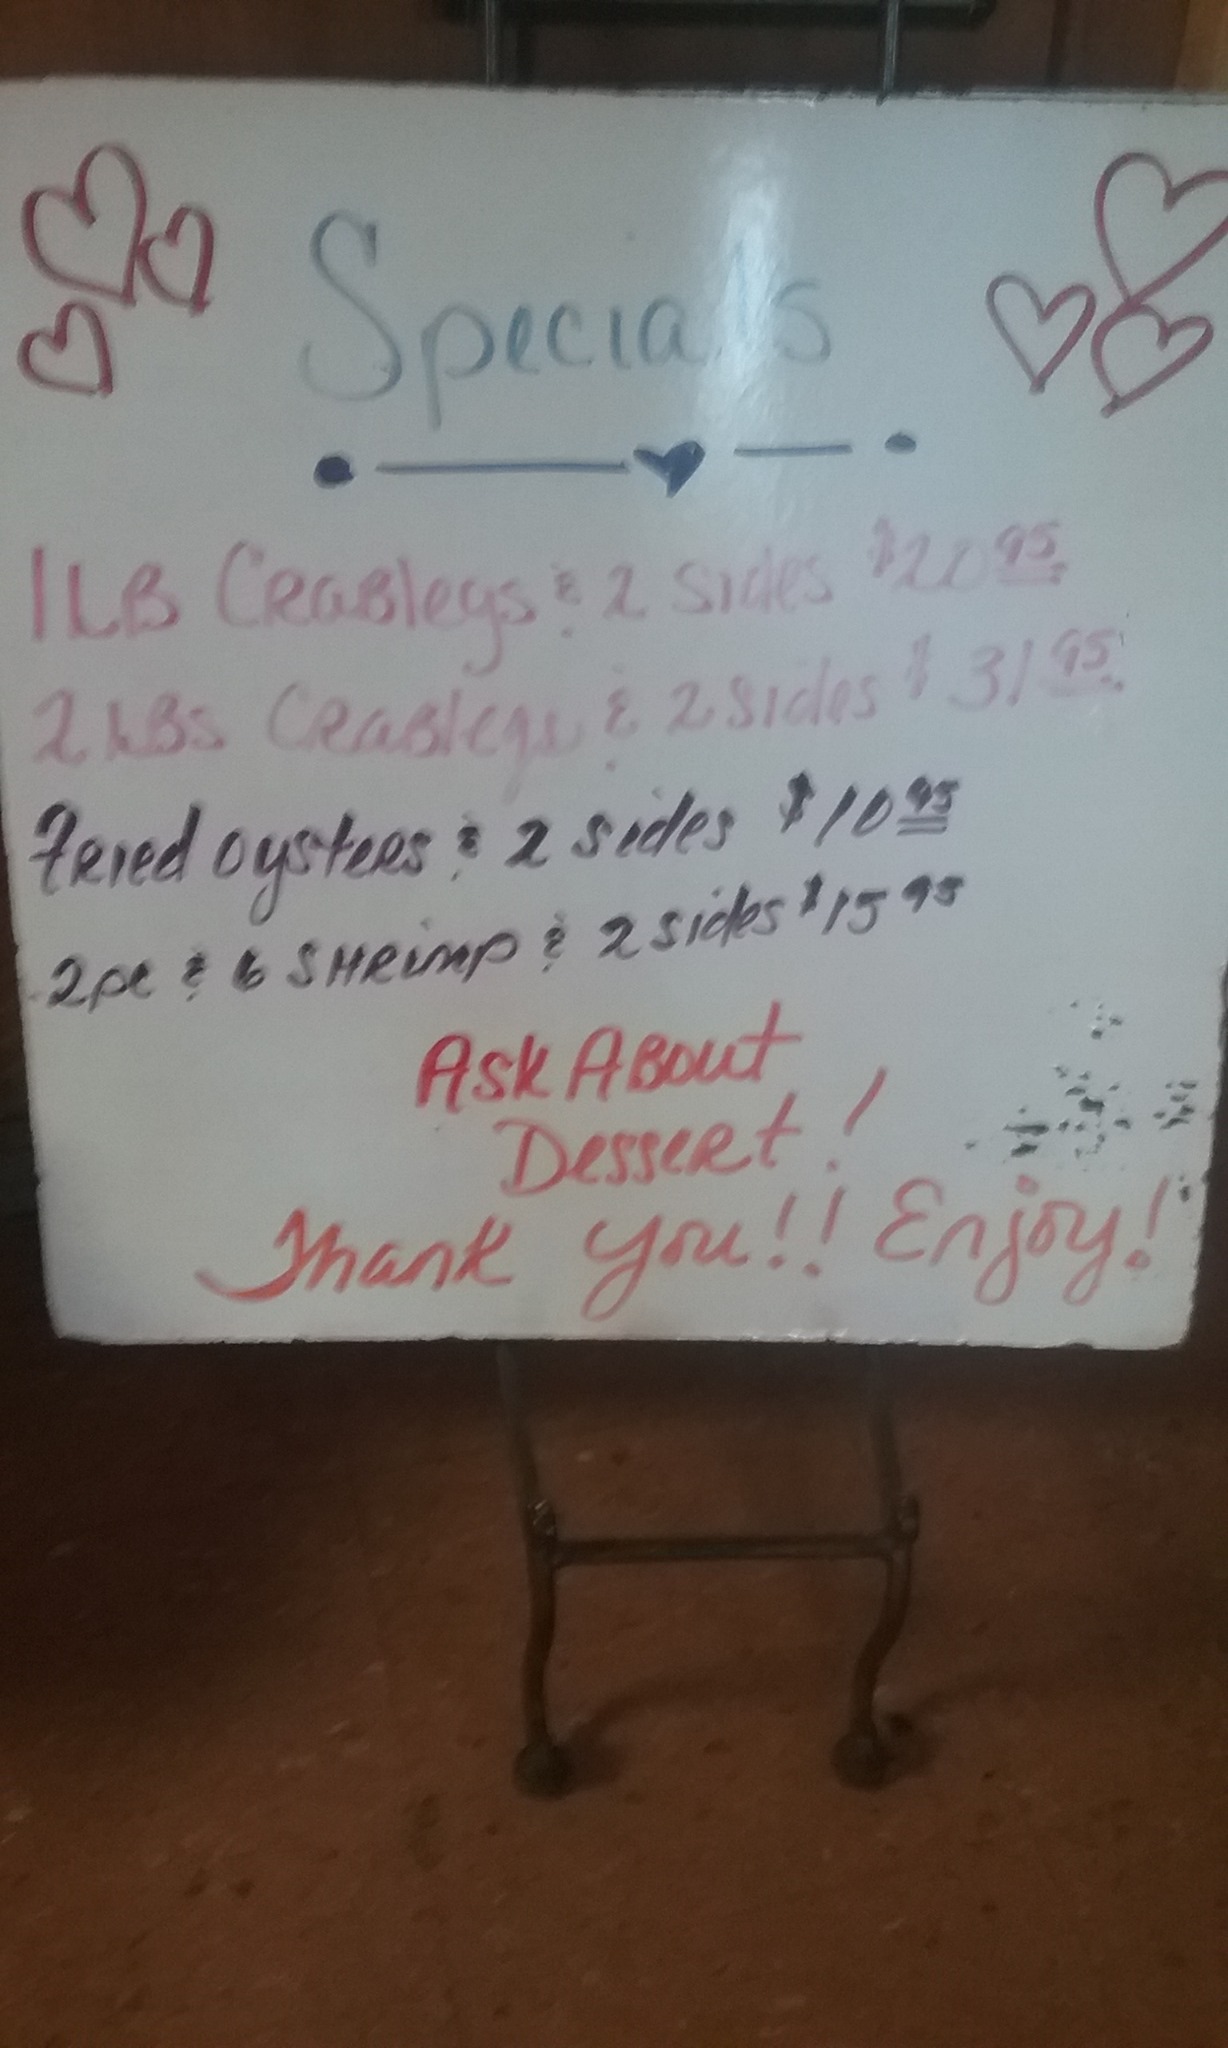 Specials
1LB CRABlegs & 2 sides $20.95
2 LBS CRABlegs & 2 sides $31.95
FRied oysteRs & 2 sides $10.95
2pc & 6 SHRimp & 2 sides $15 95
Ask About
DesseRt!
Thank you!! Enjoy!